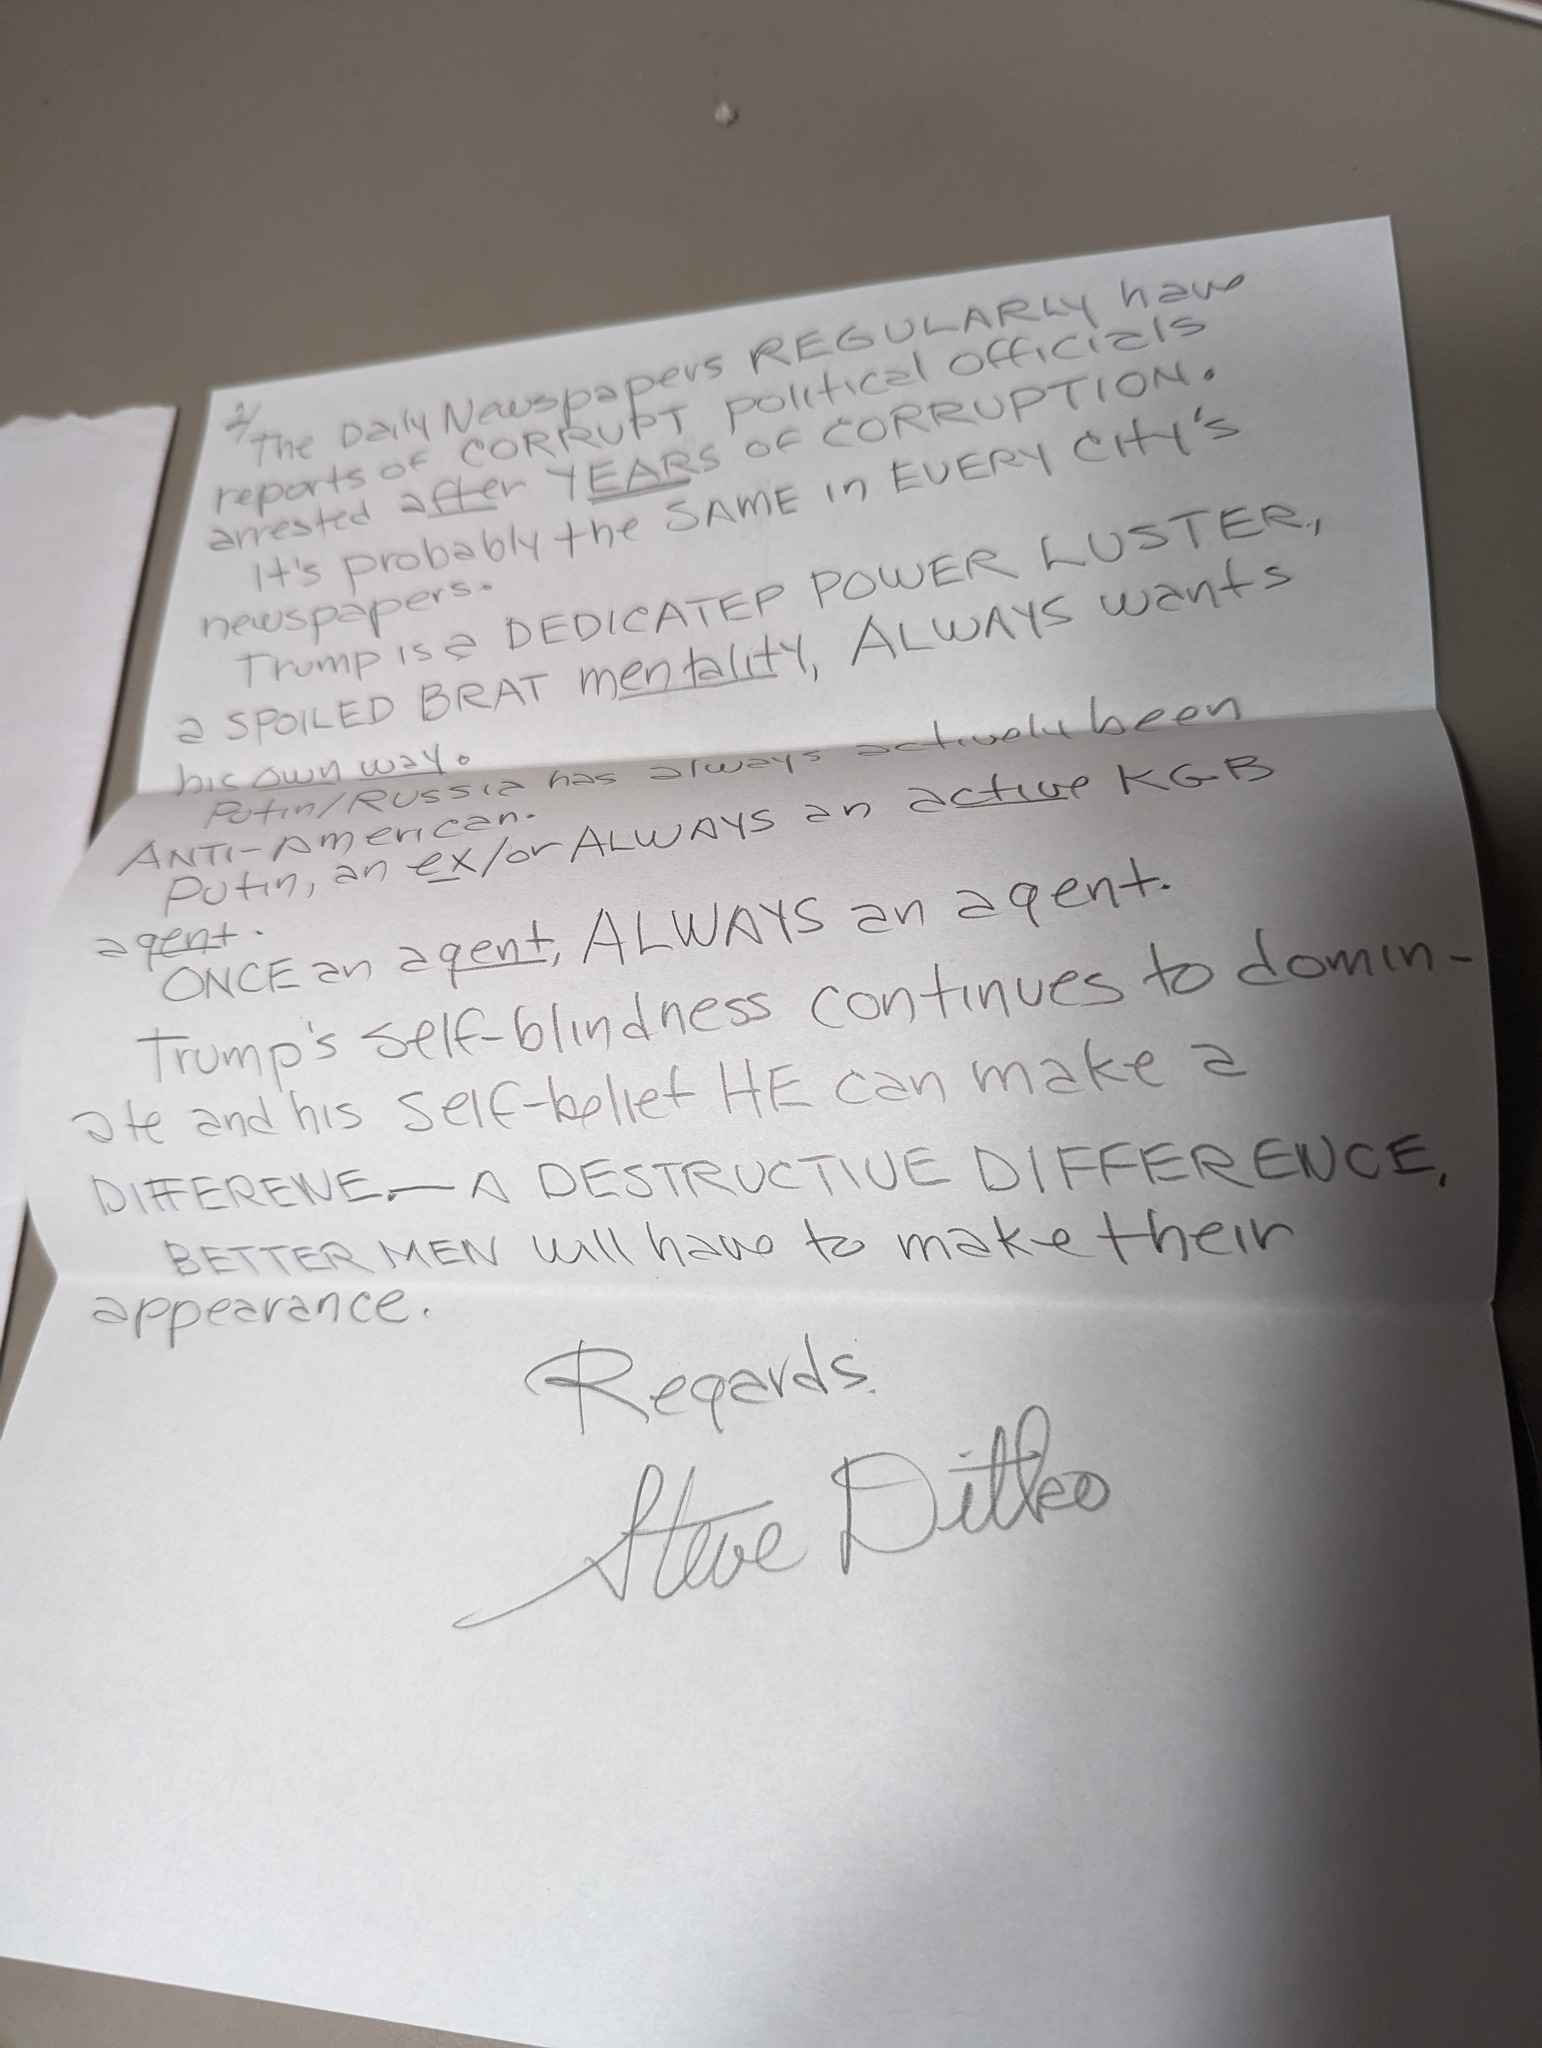 2/
The Daily Newspapers REGULARLY have
reports of CORRUPT political officials
arrested after YEARS of CORRUPTION.
It's probably the SAME in EVERY CITY'S
newspapers.
Trump is a DEDICATED POWER LUSTER,
a SPOILED BRAT mentality, ALWAYS wants
his own way.
Putin/RUSSIA has always actively been
ANTI-American.
Putin, an ex/or ALWAYS an active KGB
agent.
ONCE an agent, ALWAYS an agent.
Trump's self-blindness continues to domin-
ate and his self-belief HE can make a
DIFFERENE.—A DESTRUCTIVE DIFFERENCE.
BETTER MEN will have to make their
appearance.
Regards.
Steve Ditko